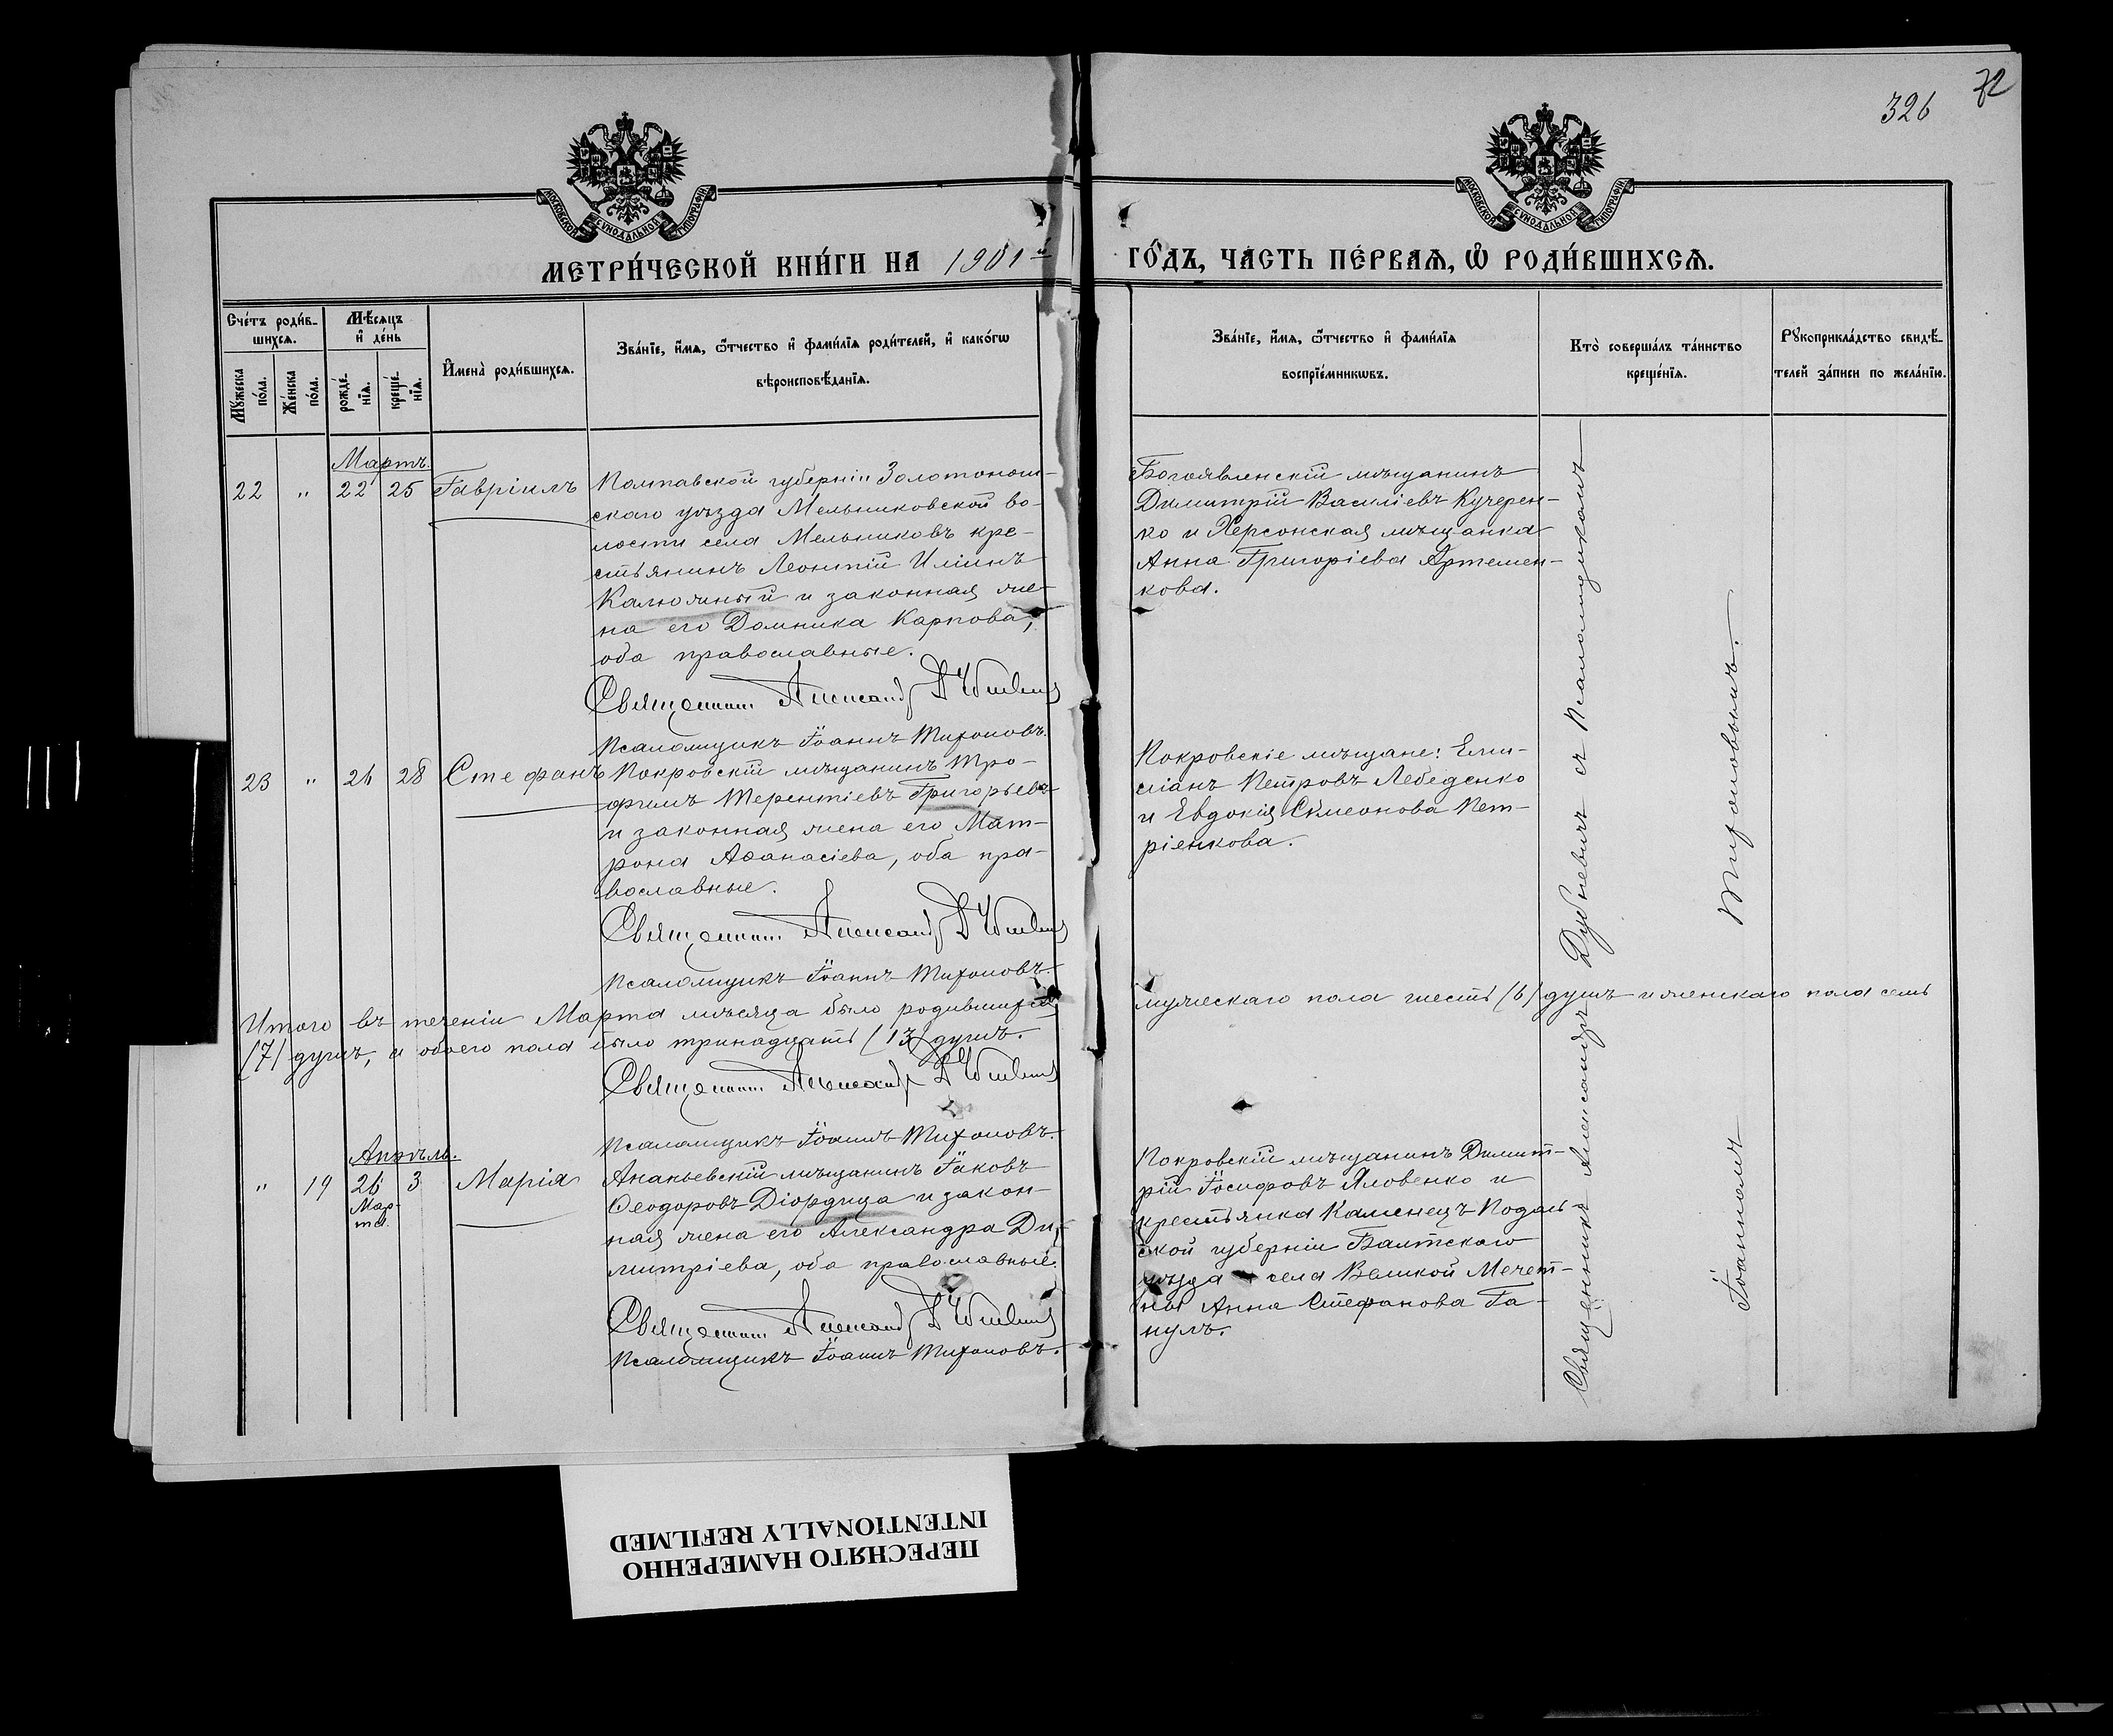 326
72
МОСКОВСКОЙ СѴНОДАЛЬНОЙ ТИПОГРАФІИ
МОСКОВСКОЙ СѴНОДАЛЬНОЙ ТИПОГРАФІИ
МЕТРИ́ЧЕСКОЙ КНИ́ГИ НА 1901й ГО́ДЪ, ЧА́СТЬ ПЕ́РВАѦ, Ѡ РОДИ́ВШИХСѦ.
Сче́тъ роди́в-
шихсѧ.
Му́жеска
по́ла.
Же́нска
по́ла.
Мѣ́сѧцъ
и де́нь
рожде́-
нїѧ.
креще́-
нїѧ.
Имена̀ роди́вшихсѧ.
Зва́нїе, и́мѧ, ѻ́тчество и фами́лїѧ роди́телей, и како́гѡ
вѣроисповѣ́данїѧ.
Зва́нїе, и́мѧ, ѻ́тчество и фами́лїѧ
воспрїе́мникѡвъ.
Кто̀ соверша́лъ та́инство
креще́нїѧ.
Рꙋкоприкла́дство свидѣ́-
телей за́писи по жела́нїю.
Мартъ.
22 " 22 25 Гавріилъ
Полтавской губерніи Золотонош-
скаго уѣзда Мельниковской во-
лости села Мельниковъ кре-
стьянинъ Леонтій Иліинъ
Калюжный и законная же-
на его Домника Карпова,
оба православные.
Священникъ Александръ Дубневичъ
Псаломщикъ Іоаннъ Тихоновъ.
Богоявленскій мѣщанинъ
Димитрій Василіевъ Кучерен-
ко и Херсонская мѣщанка
Анна Григоріева Артемен-
кова.
23 " 26 28 Стефанъ
Покровскій мѣщанинъ Тро-
фимъ Терентіевъ Григорьевъ
и законная жена его Мат-
рона Аѳанасіева, оба пра-
вославные.
Священникъ Александръ Дубневичъ
Псаломщикъ Іоаннъ Тихоновъ.
Покровскіе мѣщане: Еми-
ліанъ Петровъ Лебеденко
и Евдокія Сѵмеонова Пет-
ріенкова.
Итого въ теченіи Марта мѣсяца было родившихся мужескаго пола шесть (6) душъ и женскаго пола семь
(7) душъ, а обоего пола было тринадцать (13) душъ.
Священникъ Александръ Дубневичъ
Псаломщикъ Іоаннъ Тихоновъ.
Апрѣль.
" 19 26 3 Марія
Мар-
та.
Ананьевскій мѣщанинъ Іаковъ
Ѳеодоровъ Діордица и закон-
ная жена его Александра Ди-
митріева, оба православные.
Священникъ Александръ Дубневичъ
Псаломщикъ Іоаннъ Тихоновъ.
Покровскій мѣщанинъ Димит-
рій Іосифовъ Яловенко и
крестьянка Каменецъ Подоль-
ской губерніи Балтскаго
уѣзда села Великой Мечет-
ны Анна Стефанова Га-
нулъ.
Священникъ Александръ Дубневичъ съ Псаломщикомъ
Іоанномъ Тихоновымъ.
ПЕРЕСНЯТО НАМЕРЕННО
INTENTIONALLY REFILMED